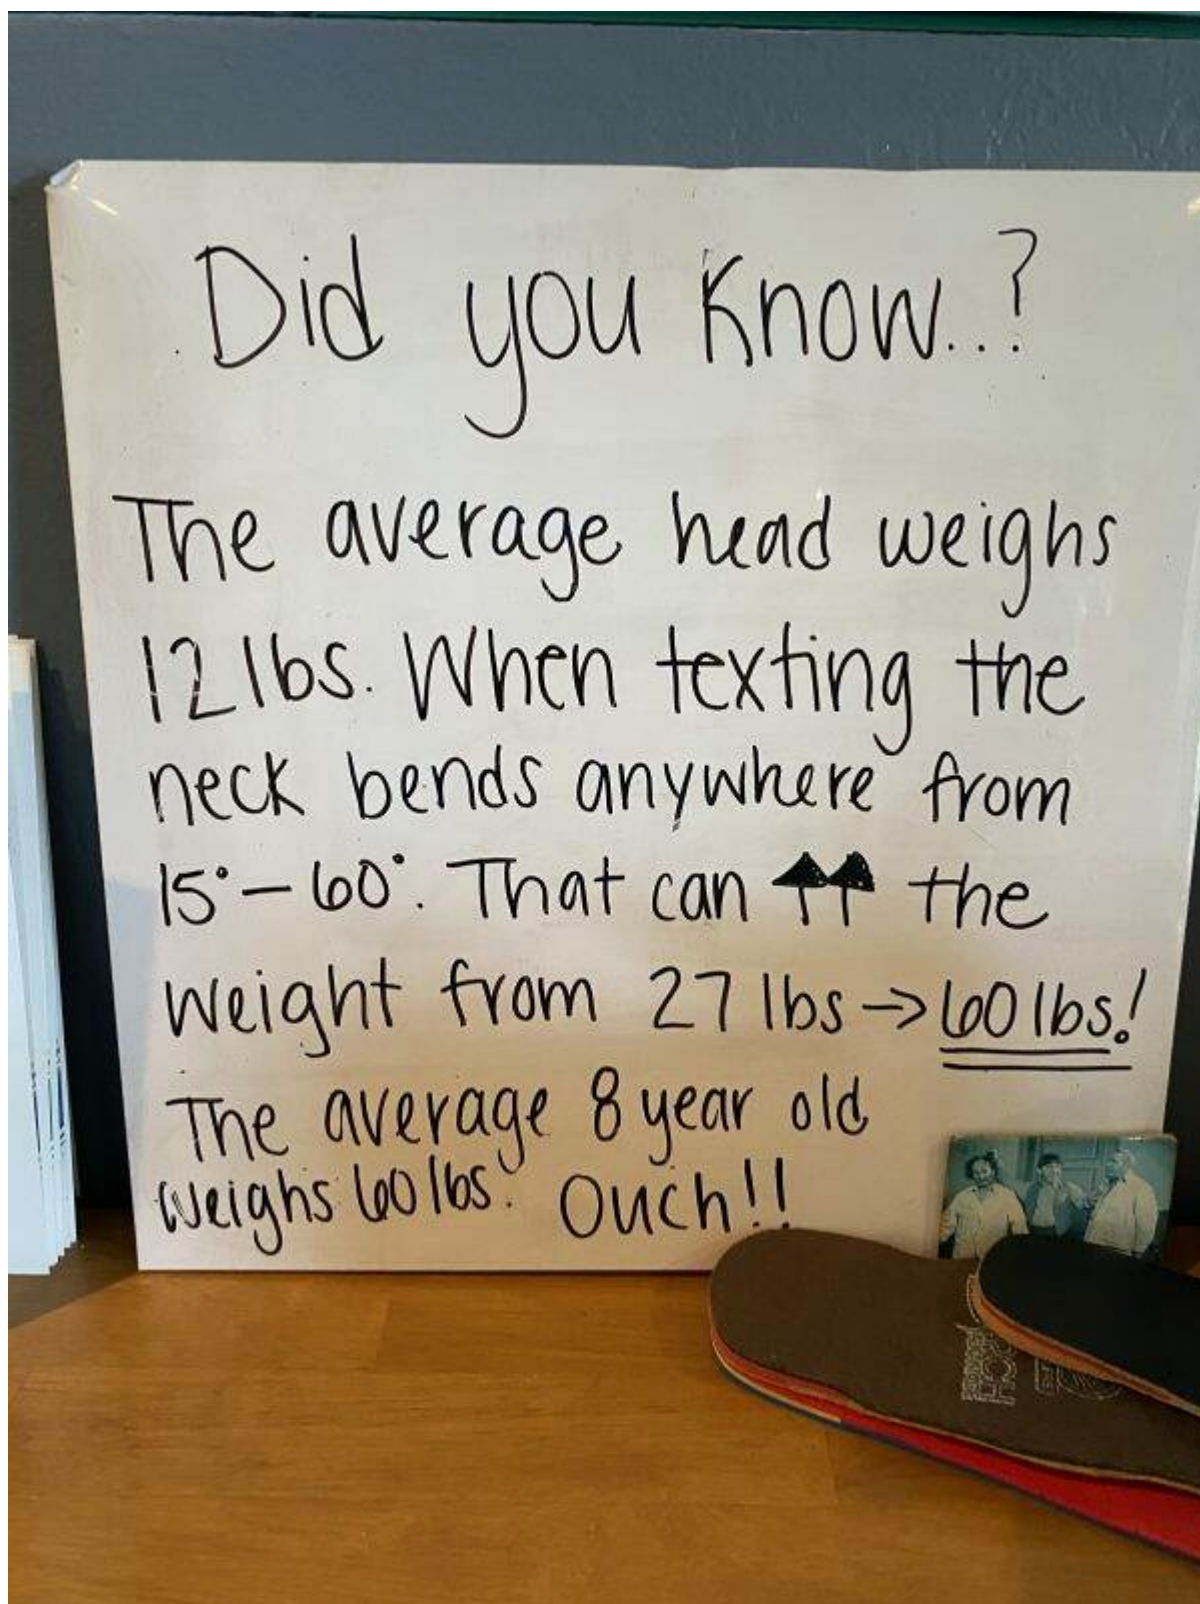 Did you know...?
The average head weighs
12 lbs. When texting the
neck bends anywhere from
15° - 60°. That can ↑↑ the
weight from 27 lbs → 60 lbs!
The average 8 year old
weighs 60 lbs. Ouch!!